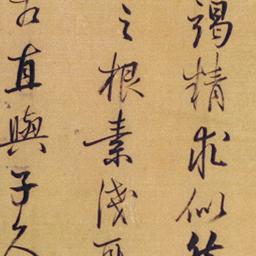 竭精求似
之根素淺
直與子久